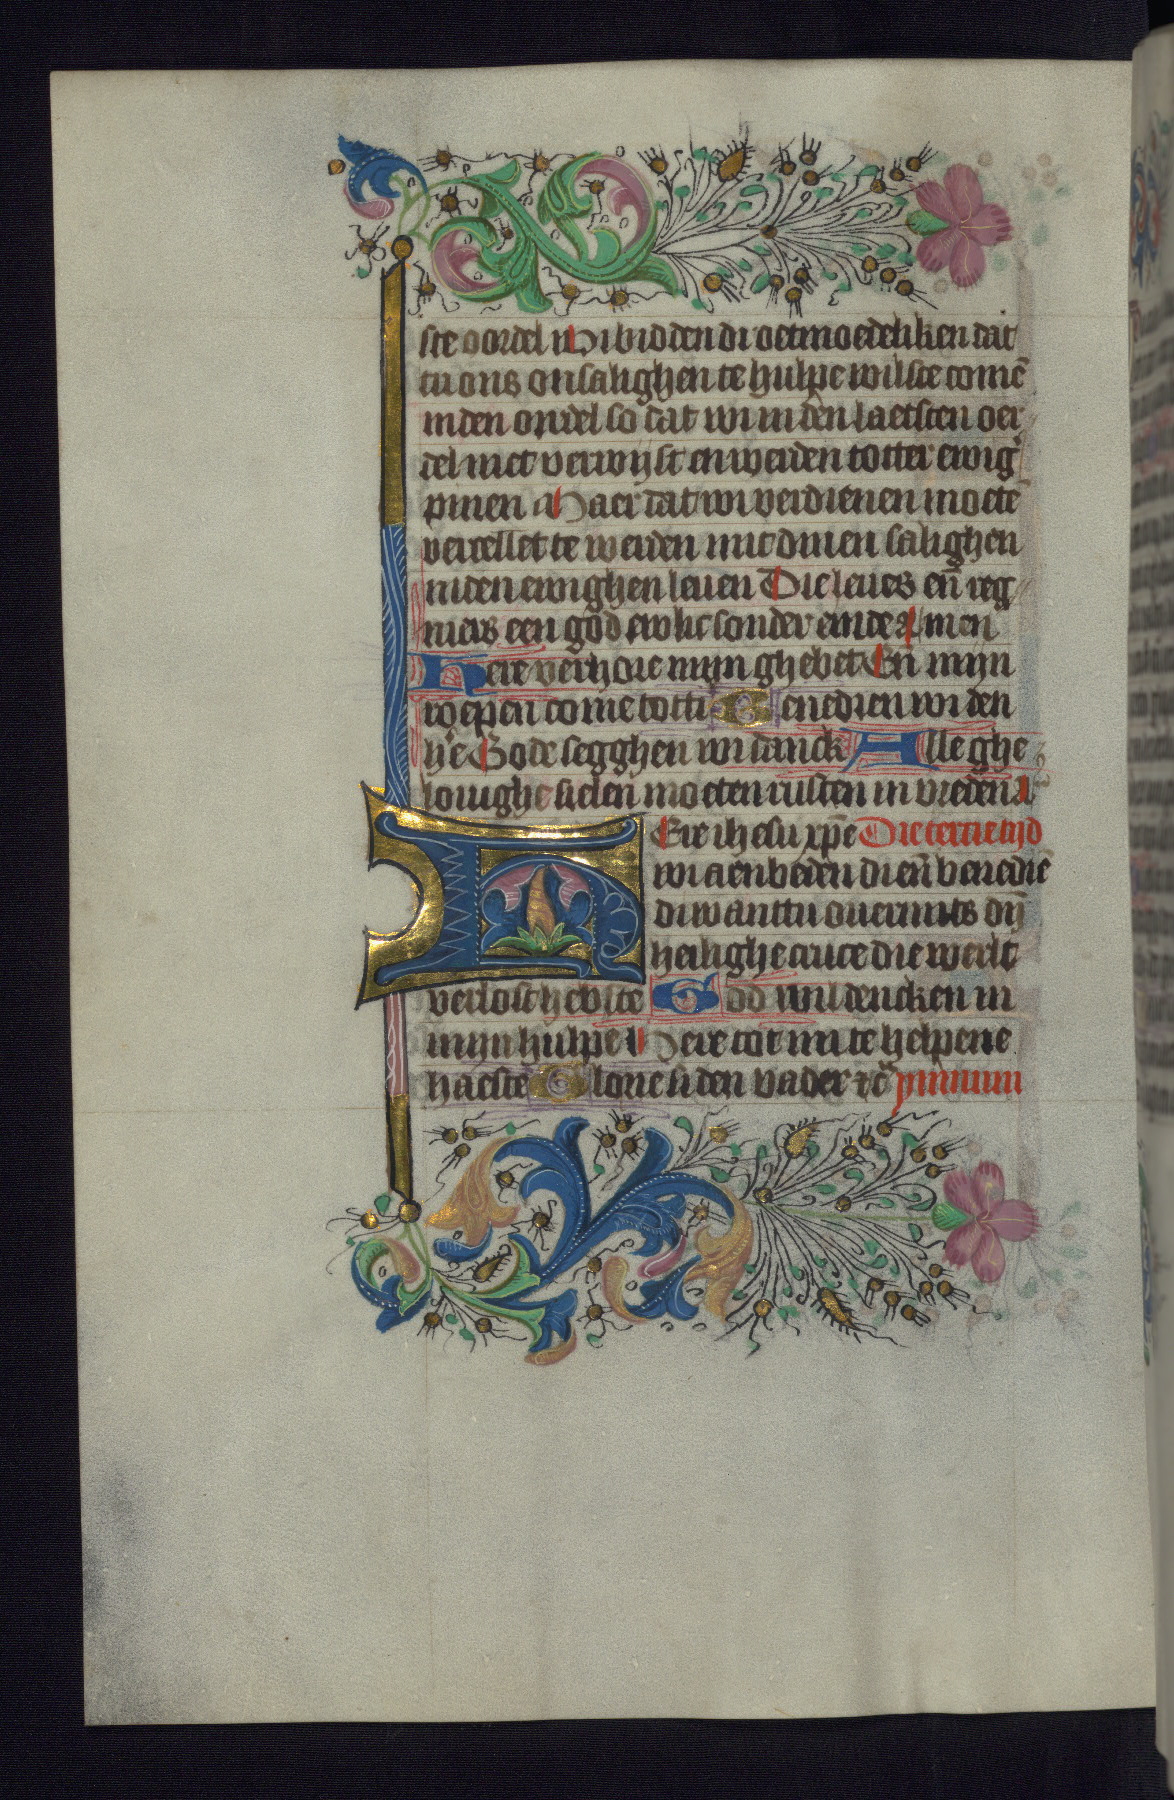 ste oordel Wi bidden di oetmoedeliken dat
tu ons onsalighen te hulpe wilste comē
in den ordel so dat wi in den laetsten oer
del niet verwijst en werden totter ewigʼ
pinen Maer dat wi verdienen moetē
versellet te werden mit dinen salighen
in den ewighen leuen Die leues eñ reg
niers een god ewelic sonder einde Amen
Here verhore mijn ghebet Eñ mijn
roepen come tot ti Benedien wi den
hʼe Gode segghen wi danck Alle ghe
louighe sielen moeten rusten in vreden A
HEre ihesu xp̄e Die tercie tijd
wi aenbeden di eñ benediē
di want tu ouermits dij
heilighe cruce die werlt
verlost hebste God wil dencken in
mijn hulpe Here tot mi te helpene
haeste Glorie si den vader ⁊c̄ ymnum